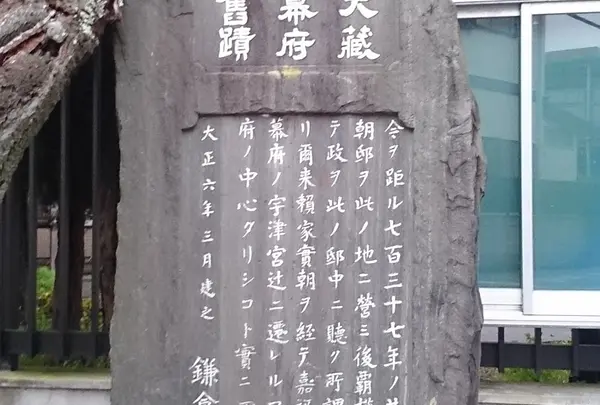 大藏
幕府
舊蹟
今ヲ距ル七百三十七年ノ
朝邸ヲ此ノ地ニ營ミ後覇權
テ政ヲ此ノ邸中ニ聽ク所謂
リ爾来賴家實朝ヲ經テ嘉祿
幕府ノ宇津宮辻ニ遷レルマ
府ノ中心タリシコト實ニ
大正六年三月建之 鎌倉